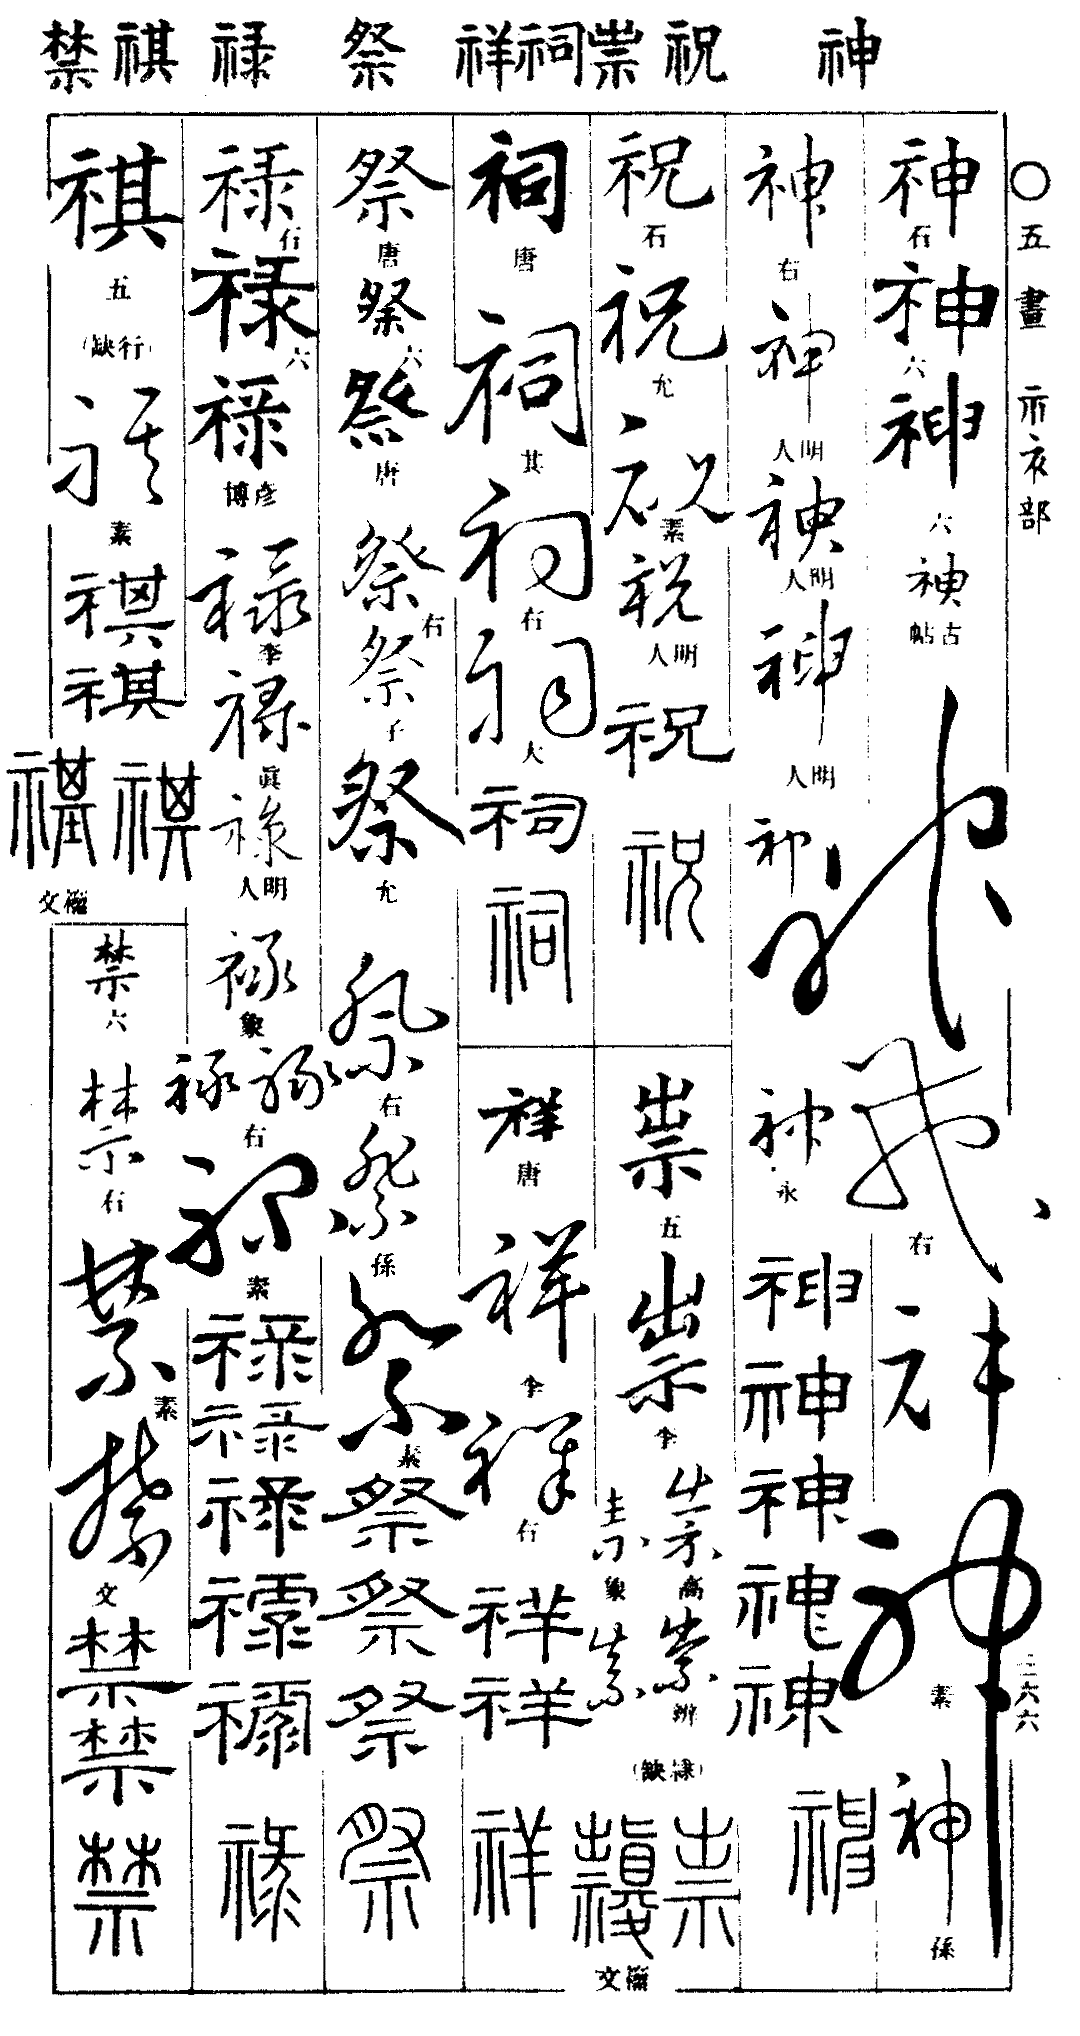 神 祝 祟 祠 祥 祭 禄 祺 禁
〇五畫 示衣部
三六六
神 石 神 六 神 六 神 古帖 神 神 右 神 神 素 神 孫
神 右 神 明人 神 明人 神 明人 神 神 永 神 神 神 神 神 神
祝 石 祝 允 祝 素 祝 明人 祝 祝
祟 五 祟 李 祟 高 祟 象 祟 辨 祟 (隷缺) 祟 祟 籀文
祠 唐 祠 其 祠 右 祠 大 祠 祠
祥 唐 祥 李 祥 右 祥 祥 祥
祭 唐 祭 六 祭 唐 祭 右 祭 子 祭 允 祭 右 祭 孫 祭 素 祭 祭 祭 祭
禄 石 禄 六 禄 彦博 禄 李 禄 眞 禄 明人 禄 象 禄 禄 右 禄 素 禄 禄 禄 禄 禄 禄
祺 五 (行缺) 祺 素 祺 祺 祺 祺 籀文
禁 六 禁 右 禁 素 禁 文 禁 禁 禁